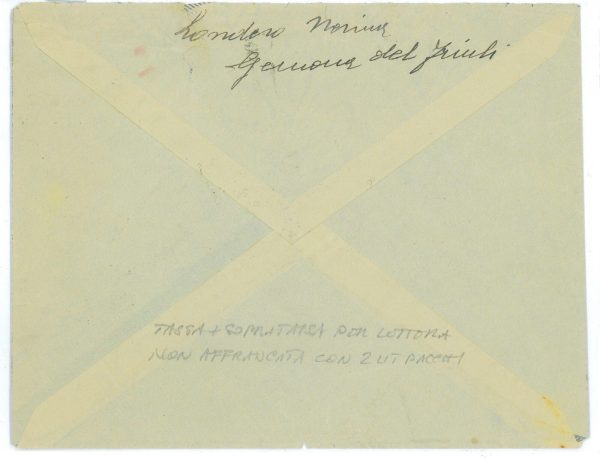 Londero Norina
Gemona del Friuli
TASSA + SOPRATASSA PER LETTERA
NON AFFRANCATA CON 2 LIT PACCHI